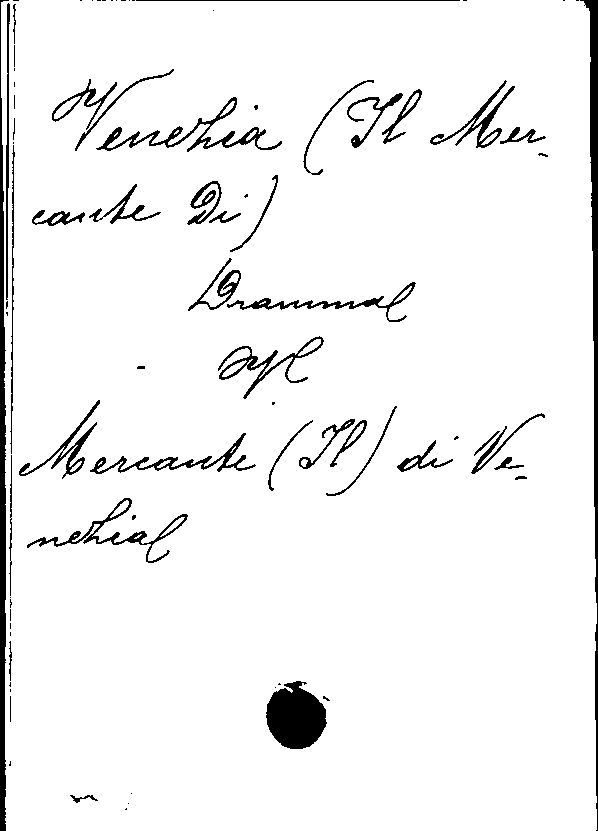 Venezia (Il Mer-
cante Di)
Dramma
Mercante (Il) di Ve-
nezia